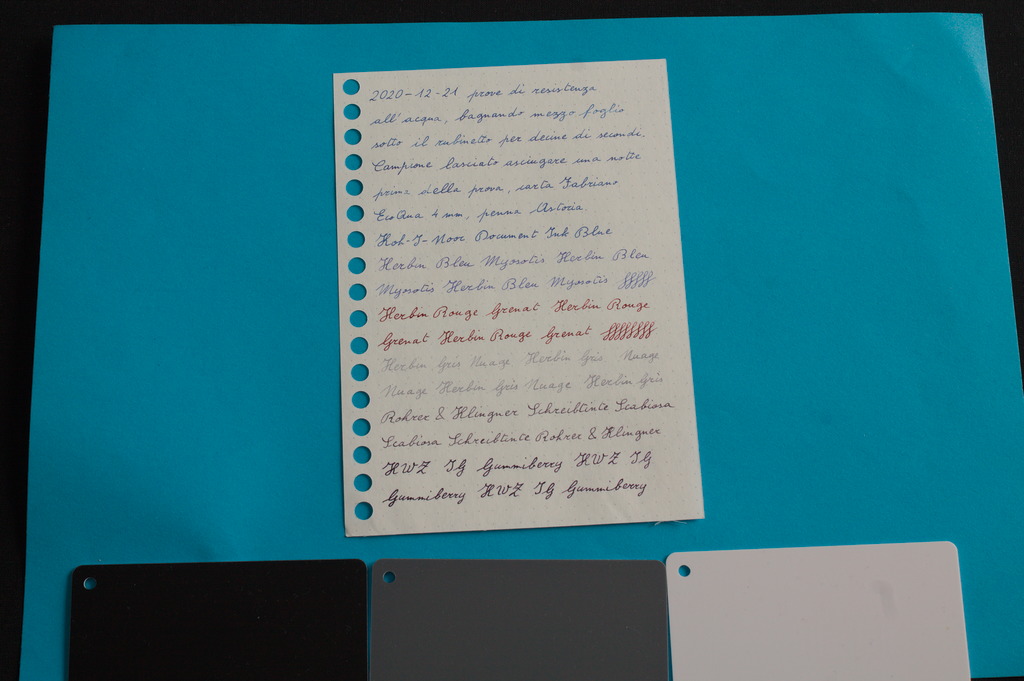 2020-12-21 prove di resistenza
all'acqua, bagnando mezzo foglio
sotto il rubinetto per decine di secondi.
Campione lasciato asciugare una notte
prima della prova, carta Fabriano
EcoQua 4 mm, penna Astoria.
Koh-I-Noor Document Ink Blue
Herbin Bleu Myosotis Herbin Bleu
Myosotis Herbin Bleu Myosotis
Herbin Rouge Grenat Herbin Rouge
Grenat Herbin Rouge Grenat
Herbin Gris Nuage Herbin Gris Nuage
Nuage Herbin Gris Nuage Herbin Gris
Rohrer & Klingner Schreibtinte Scabiosa
Scabiosa Schreibtinte Rohrer & Klingner
KWZ IG Gummiberry KWZ IG
Gummiberry KWZ IG Gummiberry